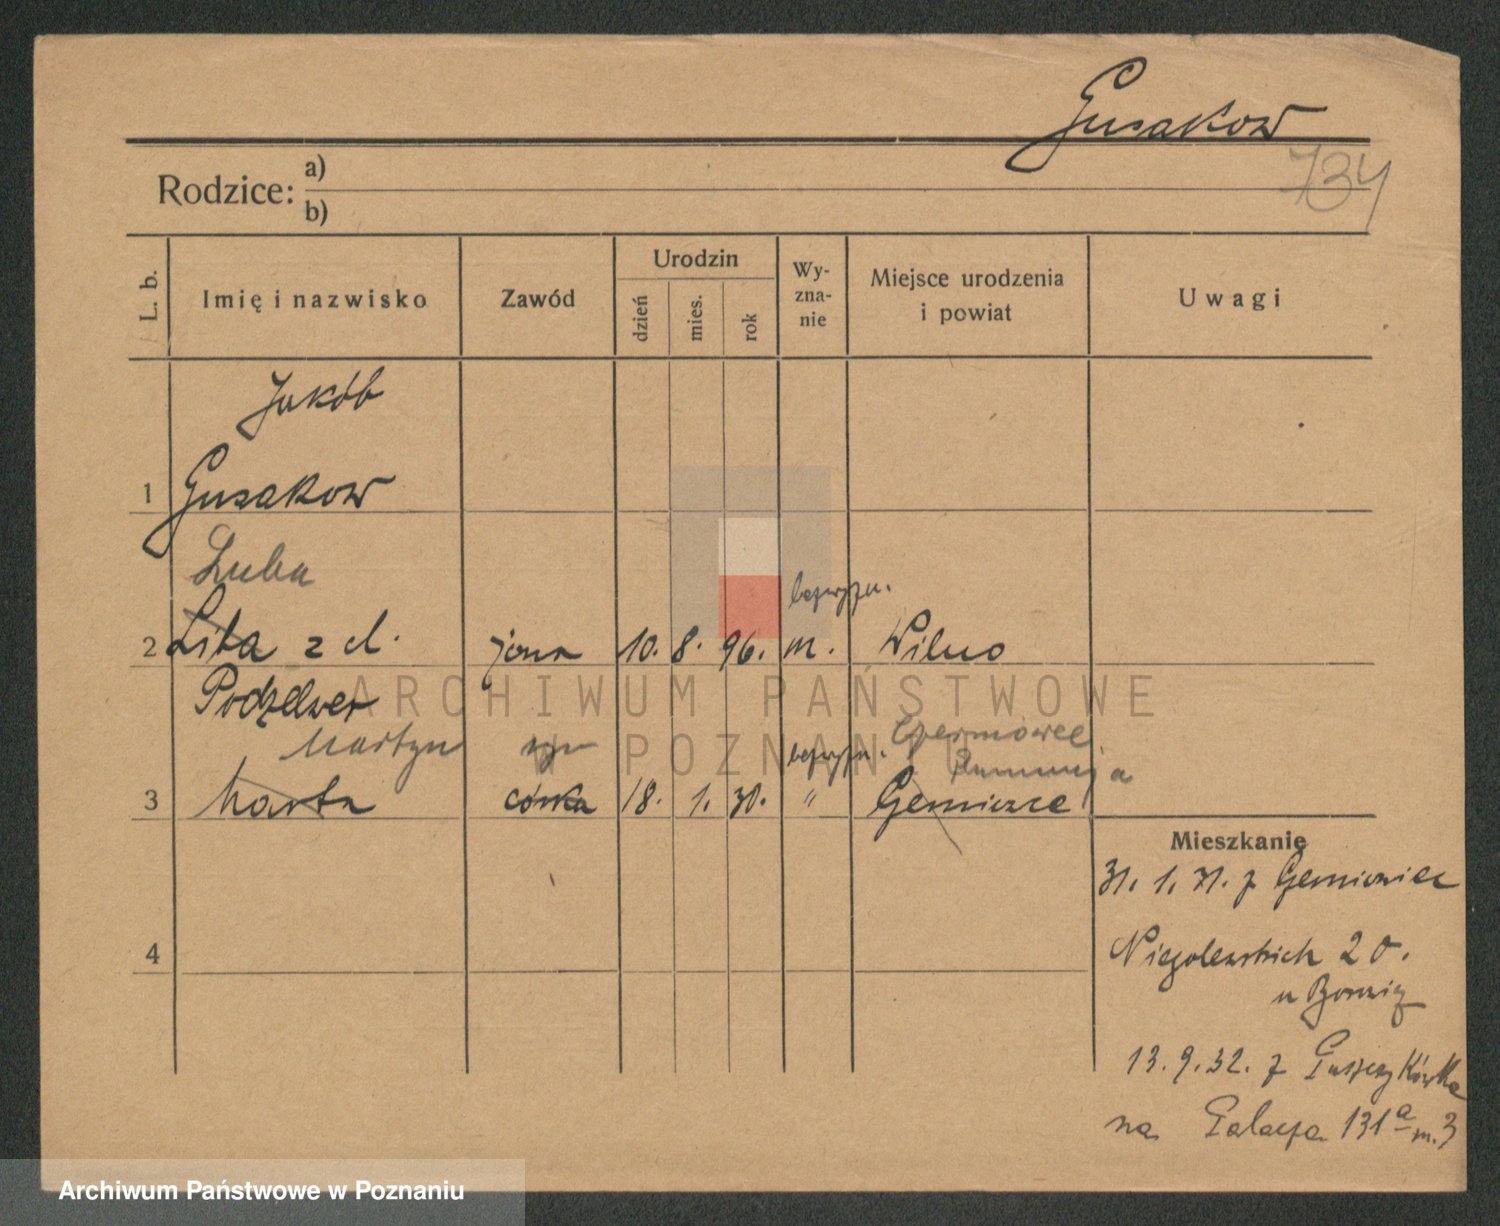 Gusakow
734
Rodzice: a)
b)
L. b.
Imię i nazwisko
Zawód
Urodzin
dzień
mies.
rok
Wy-
zna-
nie
Miejsce urodzenia
i powiat
Uwagi
Jakób
1 Gusakow
Luba
bezwyzn.
2 Liba z d. żona 10. 8. 96. m. Wilno
Podzelwer
Martyn syn bezwyzn.
3 Marta córka 18. 1. 30. "
4
Mieszkanie
31. 1. 31. z
Niegolewskich 20.
u
13. 9. 32. z
na Palacza 131a m. 3
ARCHIWUM PAŃSTWOWE
W POZNANIU
Archiwum Państwowe w Poznaniu